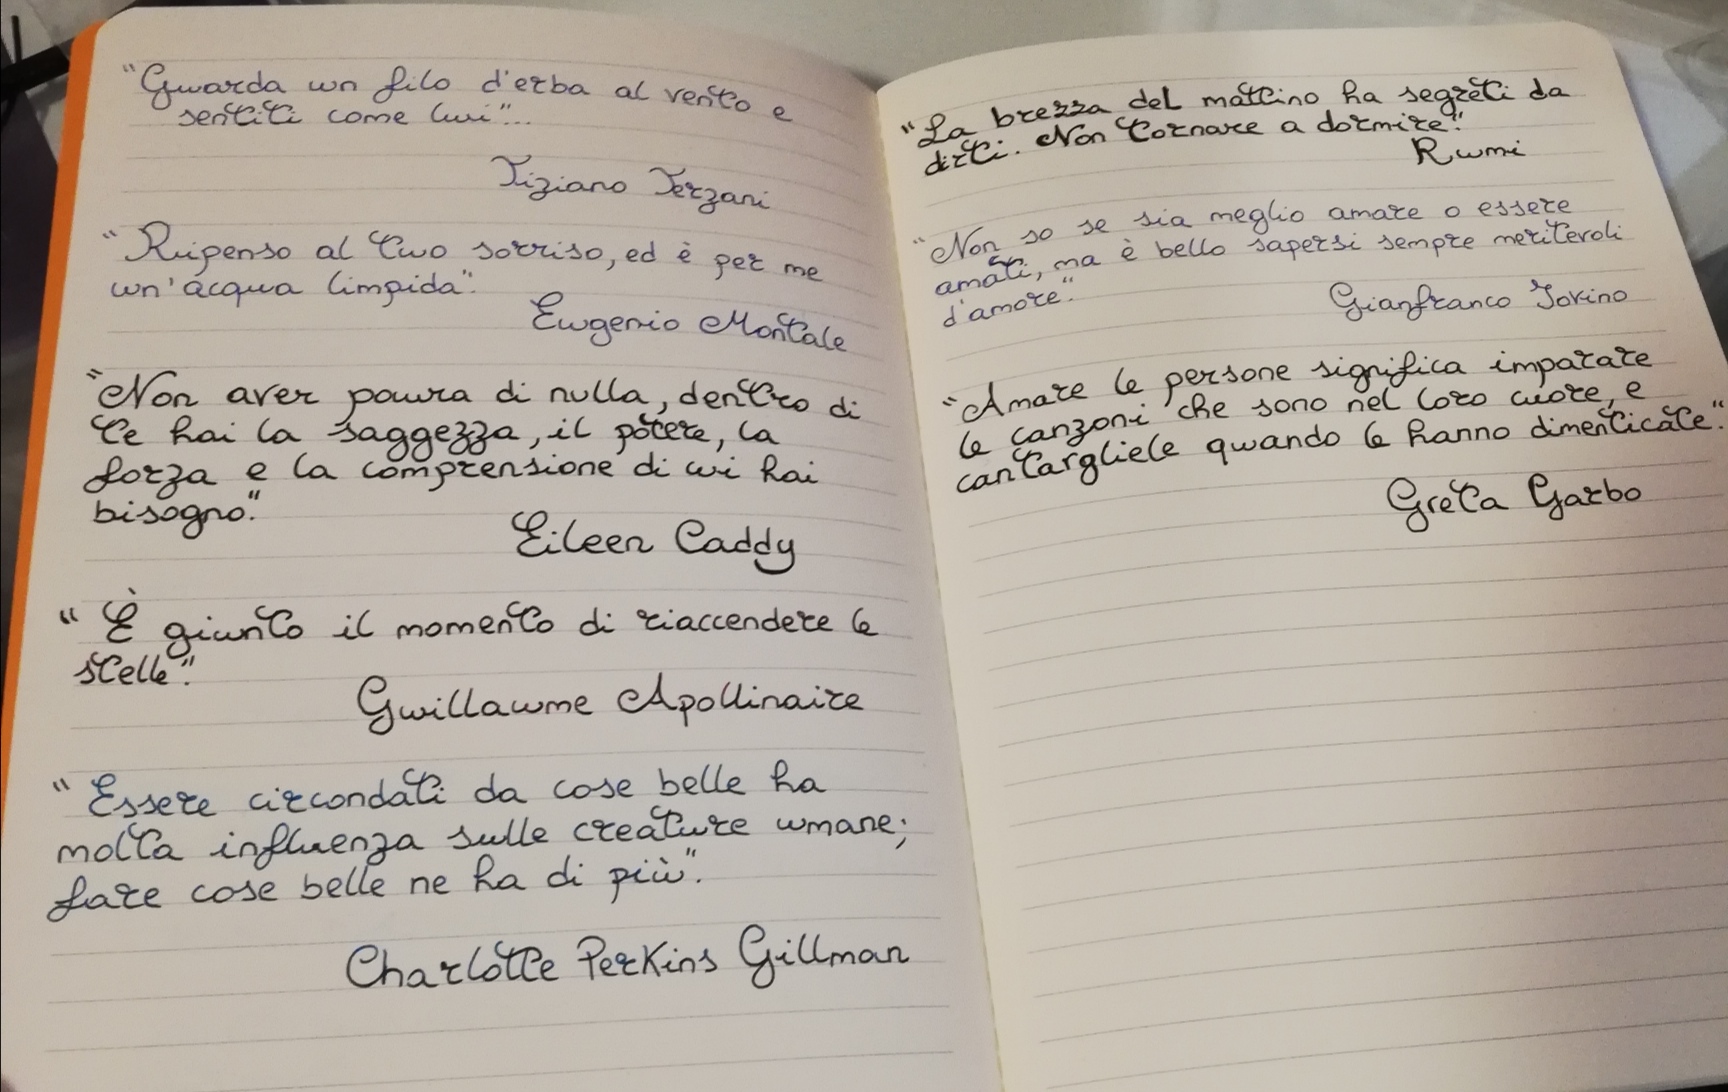 "Guarda un filo d'erba al vento e
sentiti come lui"...
Tiziano Terzani
"Ripenso al tuo sorriso, ed è per me
un'acqua limpida".
Eugenio Montale
"Non aver paura di nulla, dentro di
te hai la saggezza, il potere, la
forza e la comprensione di cui hai
bisogno."
Eileen Caddy
"È giunto il momento di riaccendere le
stelle".
Guillaume Apollinaire
"Essere circondati da cose belle ha
molta influenza sulle creature umane;
fare cose belle ne ha di più".
Charlotte Perkins Gillman
"La brezza del mattino ha segreti da
dirti. Non tornare a dormire."
Rumi
"Non so se sia meglio amare o essere
amati, ma è bello sapersi sempre meritevoli
d'amore".
Gianfranco Iovino
"Amare le persone significa imparare
le canzoni che sono nel loro cuore, e
cantargliele quando le hanno dimenticate."
Greta Garbo